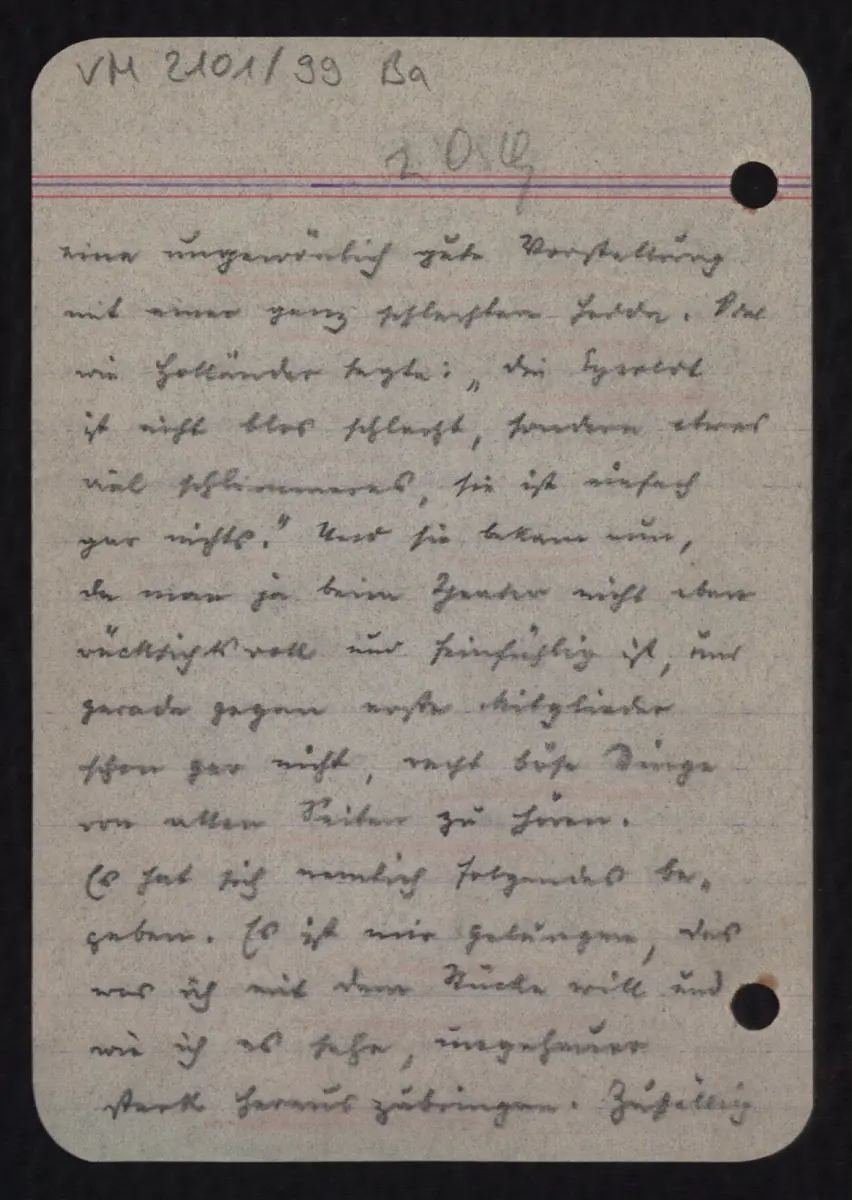 VM 2101/99 Ba
eine ungewönlich gute Vorstellung
mit einer ganz schlechten Hedda.
wie Holländer sagte: „die
ist nicht blos schlecht, sondern etwas
viel schlimmeres, sie ist einfach
gar nichts." Und sie bekam nun,
da man ja beim Theater nicht eben
rücksichtsvoll und feinfühlig ist, und
gerade gegen erste Mitglieder
schon gar nicht, recht böse Dinge
von allen Seiten zu hören.
Es hat sich nemlich folgendes be-
geben. Es ist mir gelungen, das
was ich mit dem Stücke will und
wie ich es sehe, ungeheuer
stark herauszubringen. Zufällig